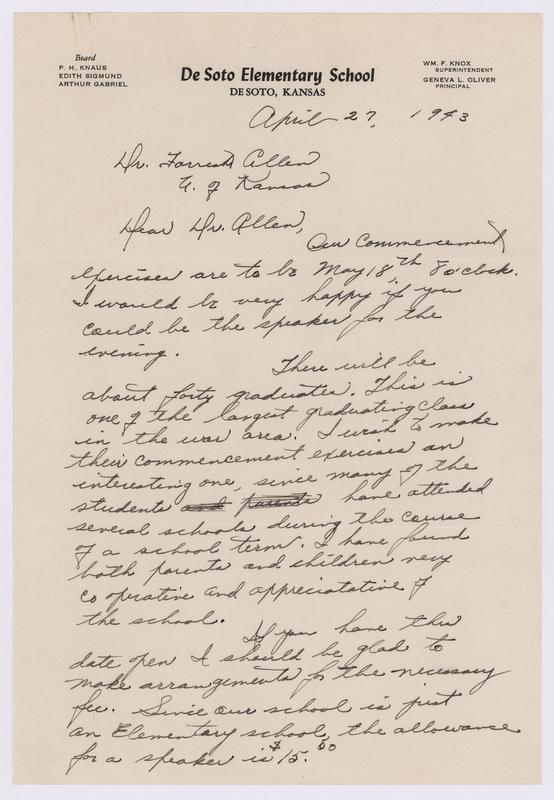 Board
P. H. KNAUS
EDITH SIGMUND
ARTHUR GABRIEL
De Soto Elementary School
DE SOTO, KANSAS
WM. F. KNOX
SUPERINTENDENT
GENEVA L. OLIVER
PRINCIPAL
April 27, 1943
Dr. Forrest Allen
U. of Kansas
Dear Dr. Allen,
Our Commencement
exercises are to be May 18th, 8 o'clock.
I would be very happy if you
could be the speaker for the
evening.
There will be
about forty graduates. This is
one of the largest graduating class
in the war area. I wish to make
their commencement exercises an
interesting one, since many of the
students and parents have attended
several schools during the course
of a school term. I have found
both parents and children very
cooperative and appreciatative of
the school.
If you have this
date open I should be glad to
make arrangements for the necessary
fee. Since our school is just
an Elementary school, the allowance
for a speaker is $15.00